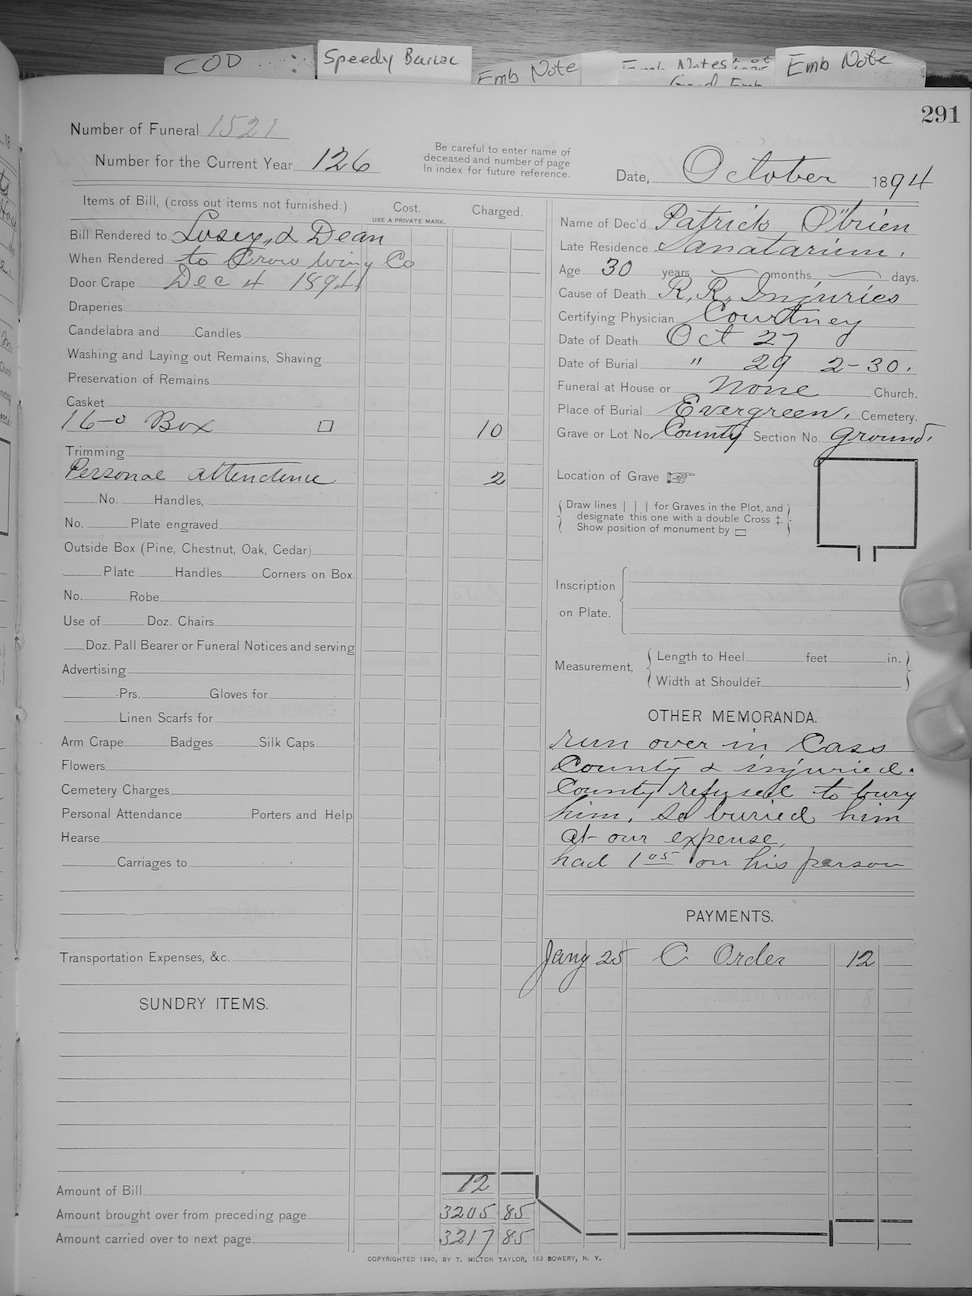 COD
Speedy Burial
Emb Note
Notes
Good Emb
Emb Note
291
Number of Funeral 1521
Number for the Current Year 126
Be careful to enter name of
deceased and number of page
in index for future reference.
Date, October 1894
Items of Bill, (cross out items not furnished.) Cost. Charged.
USE A PRIVATE MARK.
Bill Rendered to Losey & Dean
When Rendered to Crow Wing Co
Door Crape Dec 4 1894
Draperies
Candelabra and Candles
Washing and Laying out Remains, Shaving
Preservation of Remains
Casket
16-0 Box 10
Trimming
Personal attendence 2
No. Handles,
No. Plate engraved
Outside Box (Pine, Chestnut, Oak, Cedar)
Plate Handles Corners on Box.
No. Robe
Use of Doz. Chairs
Doz. Pall Bearer or Funeral Notices and serving
Advertising
Prs. Gloves for
Linen Scarfs for
Arm Crape Badges Silk Caps
Flowers
Cemetery Charges
Personal Attendance Porters and Help
Hearse
Carriages to
Transportation Expenses, &c.
SUNDRY ITEMS.
Amount of Bill 12
Amount brought over from preceding page 3205 85
Amount carried over to next page 3217 85
Name of Dec'd Patrick O'brien
Late Residence Sanatarium.
Age 30 years months, days.
Cause of Death R, R, Injuries
Certifying Physician Courtney
Date of Death Oct 27
Date of Burial " 29 2-30.
Funeral at House or None Church.
Place of Burial Evergreen, Cemetery.
Grave or Lot No. County Section No. ground.
Location of Grave
Draw lines | | | for Graves in the Plot, and
designate this one with a double Cross ‡.
Show position of monument by □
Inscription
on Plate.
Measurement, Length to Heel feet in.
Width at Shoulder
OTHER MEMORANDA.
run over in Cass
County & injuried.
County refused to bury
him. So buried him
at our expense,
had 1 05 on his person
PAYMENTS.
Jany 25 C Order 12
COPYRIGHTED 1890, BY T. MILTON TAYLOR, 163 BOWERY, N. Y.